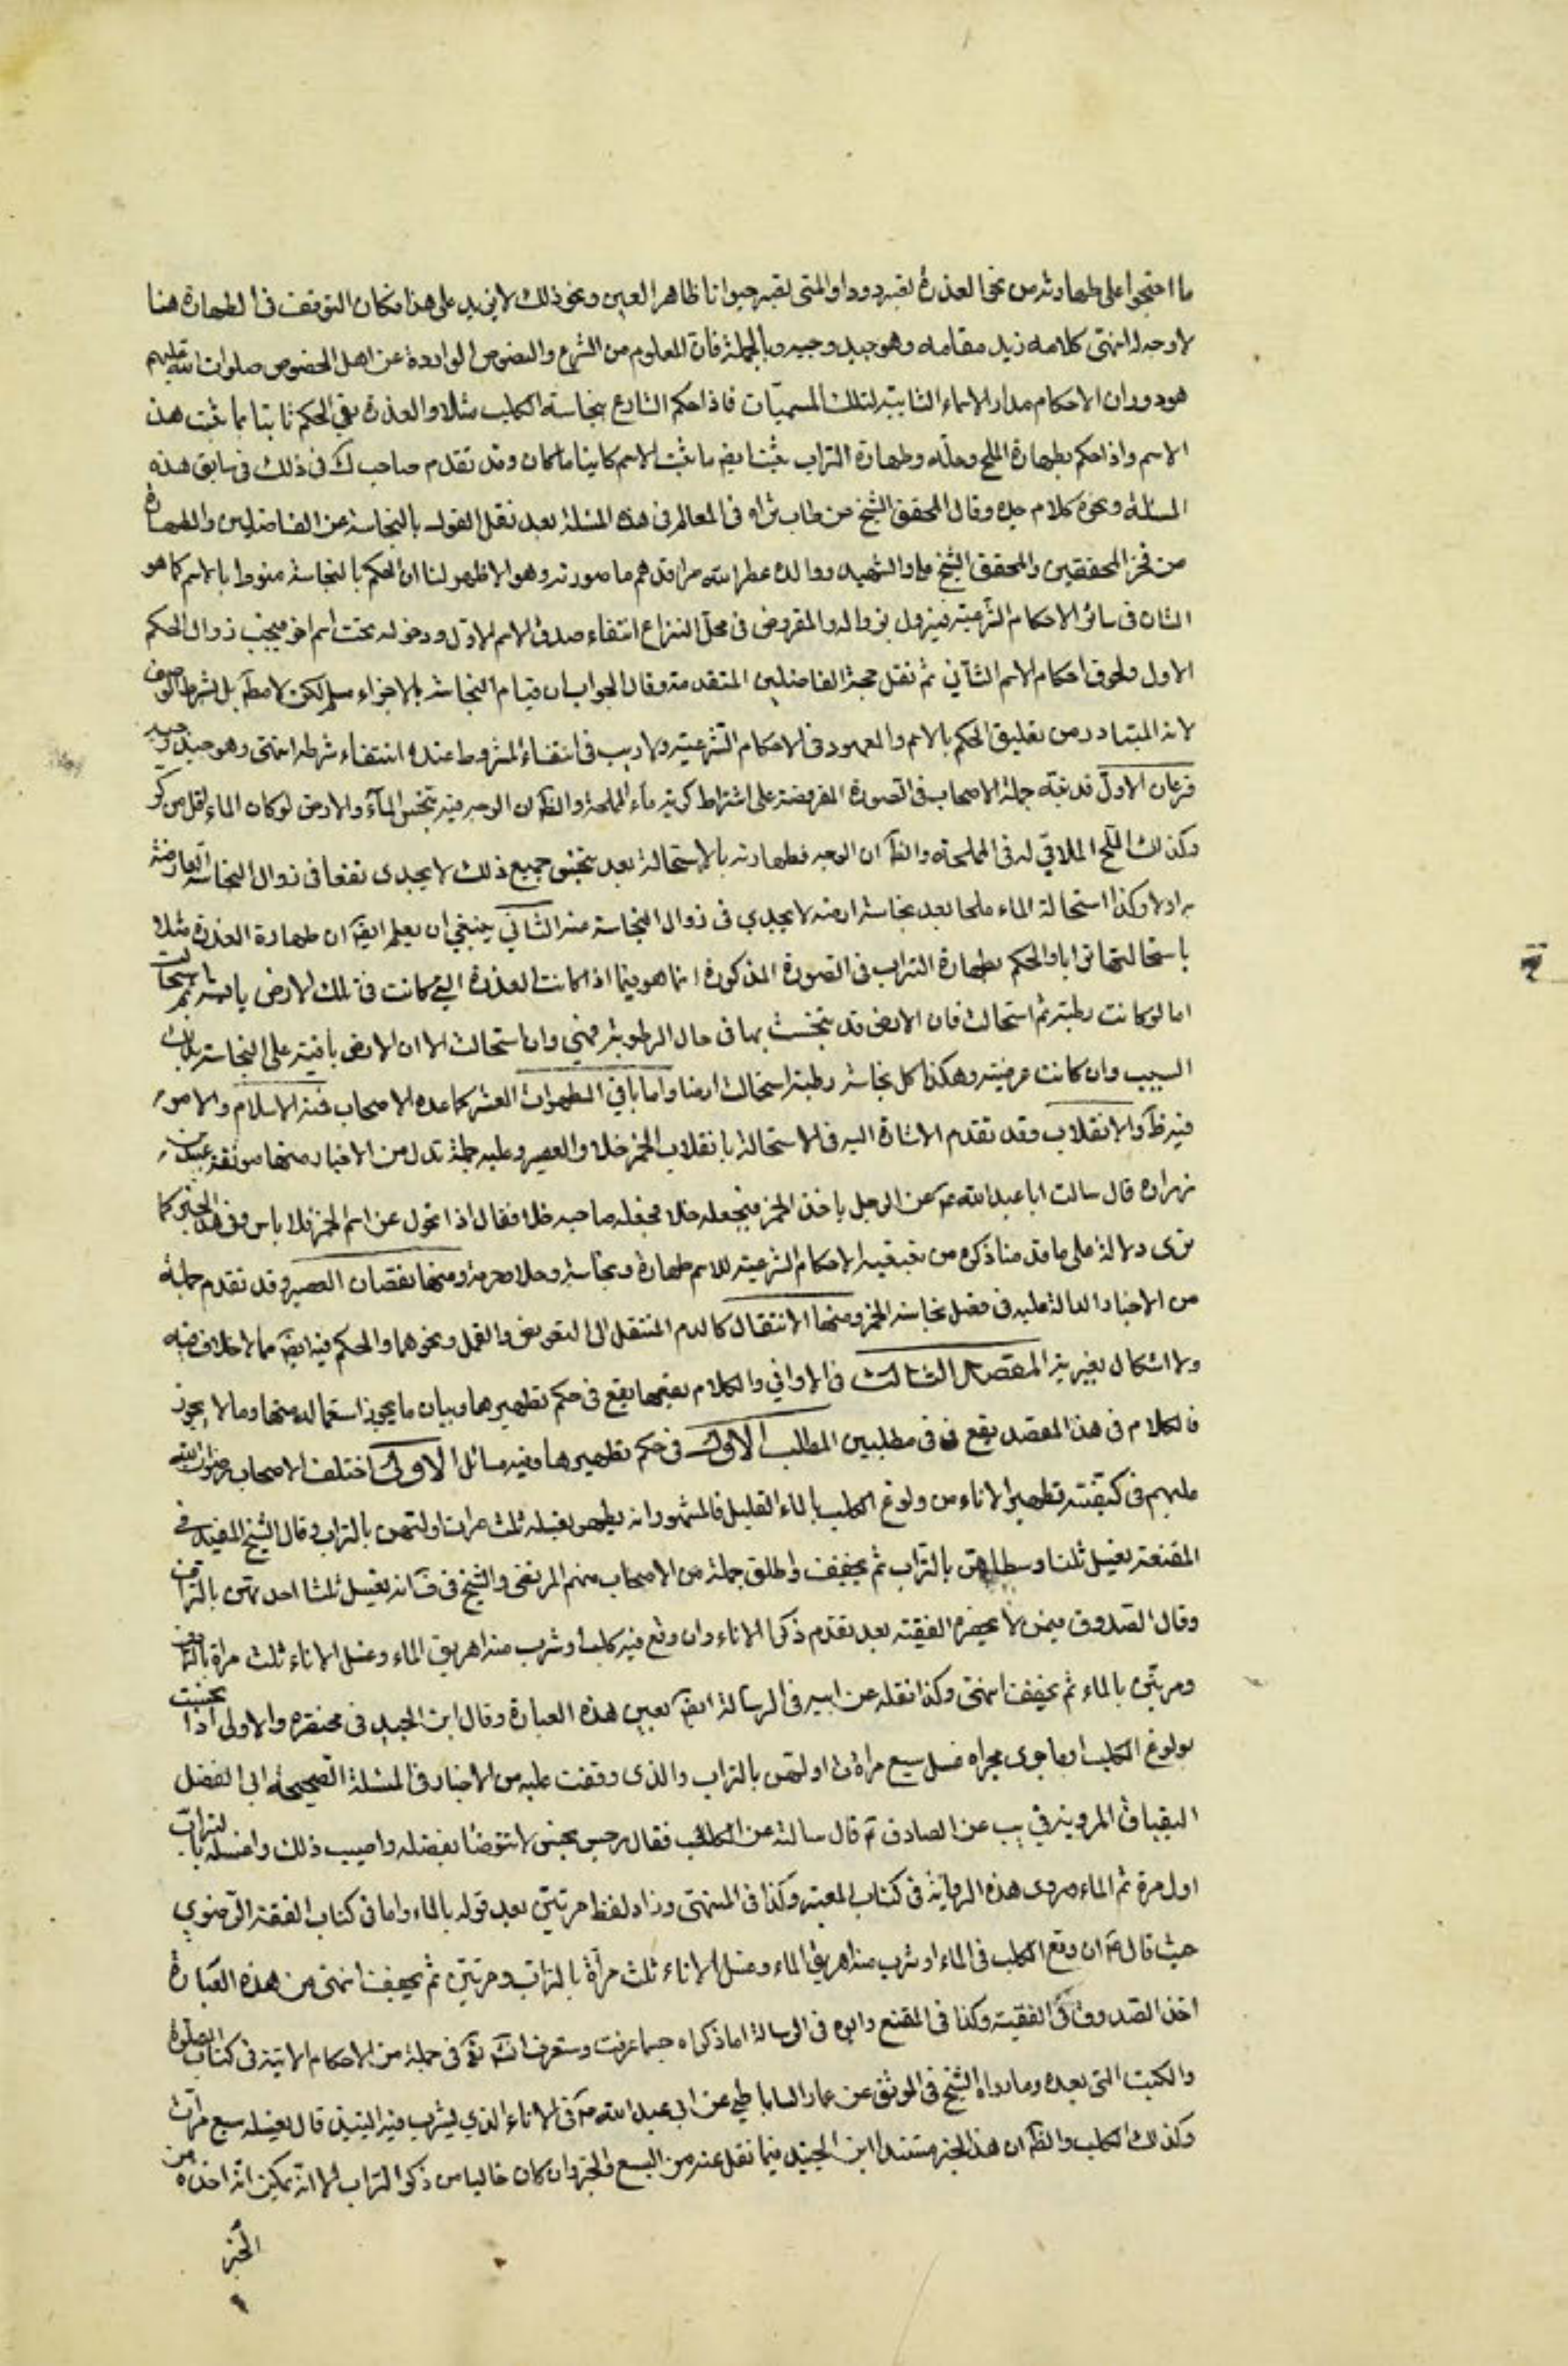 ما احتجوا على طهارته من نحو العذرة تصير دودا والمني يصير حيوانا طاهر العين ونحو ذلك لا يزيد على هذا فكان التوقف في الطهارة هنا
لا وجه له انتهى كلامه زيد مقامه وهو جيد وجيه وبالجملة فان المعلوم من الشرع والنصوص الواردة عن اهل الخصوص صلوات الله عليهم
هو دوران الاحكام مدار الاسماء الثابتة لتلك المسميات فاذا حكم الشارع بنجاسة الكلب مثلا والعذرة بقي الحكم ثابتا ما ثبت هذا
الاسم واذا حكم بطهارة الملح وحله وطهارة التراب ثبت ايضا ما ثبت الاسم كاينا ما كان وقد تقدم صاحب ك في ذلك في سابق هذه
المسئلة ونحوه كلام جده وقال المحقق الشيخ حسن طاب ثراه في المعالم في هذه المسئلة بعد نقل القول بالنجاسة عن الفاضلين والطهارة
من فخر المحققين والمحقق الشيخ على والشهيد ووالده عطر الله مراقدهم ما صورته وهو الاظهر لنا ان الحكم بالنجاسة منوط بالاسم كما هو
الشان في سائر الاحكام الشرعية فيزول بزواله والمفروض في محل النزاع انتفاء صدق الاسم الاول ودخوله تحت اسم اخر فيجب زوال الحكم
الاول ولحوق احكام الاسم الثاني ثم نقل حجة الفاضلين المتقدمة وقال الجواب ان قيام النجاسة بالاجزاء مسلم لكن لا مطلقا بل بشرط الوصف
لانه المتبادر من تعليق الحكم بالاسم والمعهود في الاحكام الشرعية ولا ريب في انتفاء المشروط عنده انتفاء شرطه انتهى وهو جيد وجيه
فرعان الاول قد نبه جملة الاصحاب في الصورة المفروضة على اشتراط كرية ماء المملحة والظ ان الوجه فيه تنجس الماء والارض لو كان الماء اقل من كر
وكذلك الملح الملاقي له في المملحة والظ ان الوجه فطهارته بالاستحالة بعد تنجس جميع ذلك لا يجدي نفعا في زوال النجاسة العارضة
به اولا وكذا استحالة الماء ملحا بعد نجاسة ارضه لا يجدي في زوال النجاسة عنه الثاني ينبغي ان يعلم ايضا ان طهارة العذرة مثلا
باستحالتها ترابا والحكم بطهارة التراب في الصورة المذكورة انما هو فيما اذا كانت العذرة التي كانت في تلك الارض يابسة ثم استحالت
اما لو كانت رطبة ثم استحالت فان الارض قد تنجست بها في حال الرطوبة فهي وان استحالت الا ان الارض باقية على النجاسة بذلك
السبب وان كانت عرضية وهكذا كل نجاسة رطبة استحالت ارضا واما باقي المطهرات العشر كما عده الاصحاب فمنه الاسلام والامر
فيه ظ والانقلاب وقد تقدم الاشارة اليه في الاستحالة بانقلاب الخمر خلا والعصير وعليه جملة تدل من الاخبار منها موثقة عبيد بن
زرارة قال سالت ابا عبد الله ع عن الرجل ياخذ الخمر فيجعله خلا فجعله صاحبه خلا فقال اذا تحول عن اسم الخمر فلا باس وفي هذا الخبر كما
ترى دلالة على ما قدمنا ذكره من تبعية الاحكام الشرعية للاسم طهارة ونجاسة وحلا وحرمة ومنها نقصان العصير وقد تقدم جملة
من الاخبار الدالة عليه في فصل نجاسة الخمر ومنها الانتقال كالدم المنتقل الى البعوض والقمل ونحوهما والحكم فيه ايضا مما لا خلاف فيه
ولا اشكال يعتريه المقصد الثالث في الاواني والكلام فيها يقع في حكم تطهيرها وبيان ما يجوز استعماله منها وما لا يجوز
فالكلام في هذا المقصد يقع في مطلبين المطلب الاول في حكم تطهيرها وفيه مسائل الاولى اختلف الاصحاب رضوان الله
عليهم في كيفية تطهير الاناء من ولوغ الكلب بالماء القليل فالمشهور انه يطهر بغسله ثلث مرات اولتهن بالتراب وقال الشيخ المفيد في
المقنعة يغسل ثلثا وسطاهن بالتراب ثم يجفف واطلق جملة من الاصحاب منهم المرتضى والشيخ في ف انه يغسل ثلثا احديهن بالتراب
وقال الصدوق فيمن لا يحضره الفقيه بعد تقدم ذكر الاناء وان وقع فيه كلب او شرب منه اهريق الماء وغسل الاناء ثلث مرة بالتراب
ومرتين بالماء ثم يجفف انتهى وكذا نقله عن ابيه في الرسالة ايضا بعين هذه العبارة وقال ابن الجنيد في مختصره والاولى اذا تنجست
بولوغ الكلب او ما جرى مجراه غسل سبع مرات اولتهن بالتراب والذي وقفت عليه من الاخبار في المسئلة الصحيحة ابي الفضل
البقباق المروية في يب عن الصادق ع قال سالته عن الكلب فقال رجس نجس لا تتوضا بفضله واصبب ذلك واغسله بالتراب
اول مرة ثم الماء مروى هذه الرواية في كتاب المعتبر وكذا في المنتهى وزاد لفظ مرتين بعد قوله بالماء واما في كتاب الفقه الرضوي
حيث قال ع ان وقع الكلب في الماء او شرب منه اهريق الماء وغسل الاناء ثلث مرة بالتراب ومرتين ثم يجفف انتهى من هذه العبارة
اخذ الصدوق في الفقيه وكذا في المقنع وابوه في الرسالة اما ذكراه حسبما عرفت وستعرف انشاء الله تع في جملة من الاحكام الاتية في كتاب الصلوة
والكتب التي بعده وما رواه الشيخ في الموثق عن عمار الساباطي عن ابي عبد الله ع في الاناء الذي يشرب فيه النبيذ قال يغسله سبع مرات
وكذلك الكلب والظ ان هذا الخبر مستند ابن الجنيد فيما نقل عنه من السبع والخبر وان كان خاليا من ذكر التراب الا انه يمكن انه اخذه من
الخبر